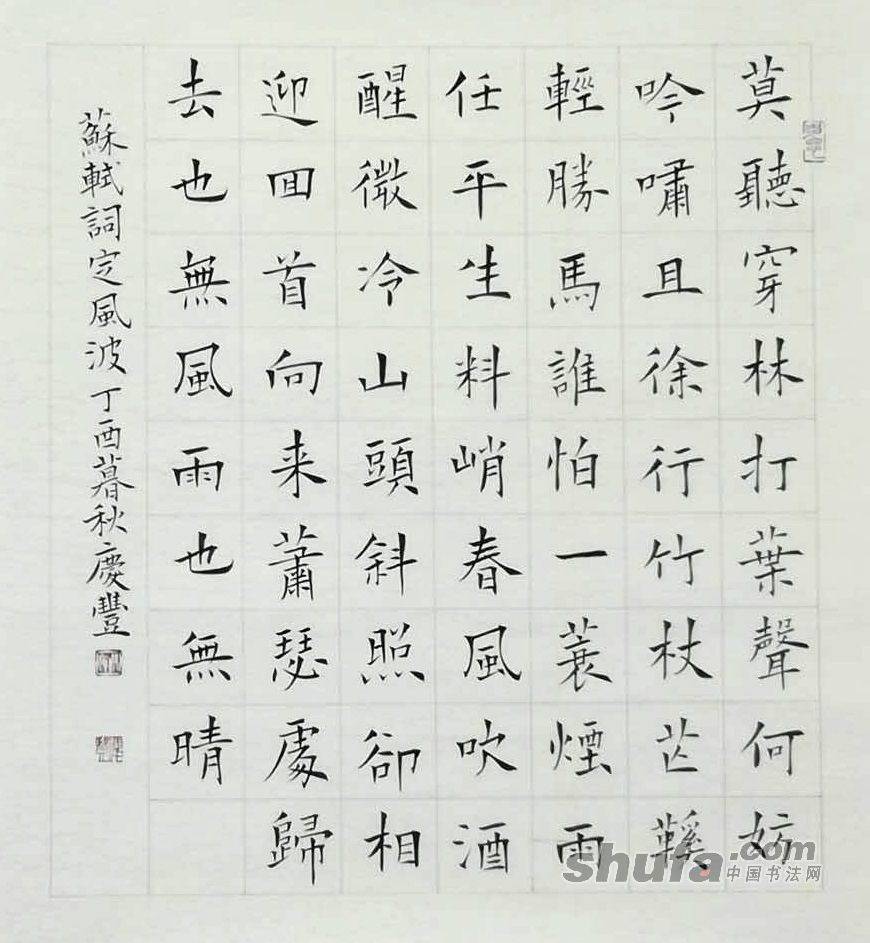 莫聽穿林打葉聲何妨
吟嘯且徐行竹杖芒鞵
輕勝馬誰怕一蓑煙雨
任平生料峭春風吹酒
醒微冷山頭斜照卻相
迎回首向来蕭瑟處歸
去也無風雨也無晴
蘇軾詞定風波丁酉暮秋慶豐
shufa.com
中国书法网